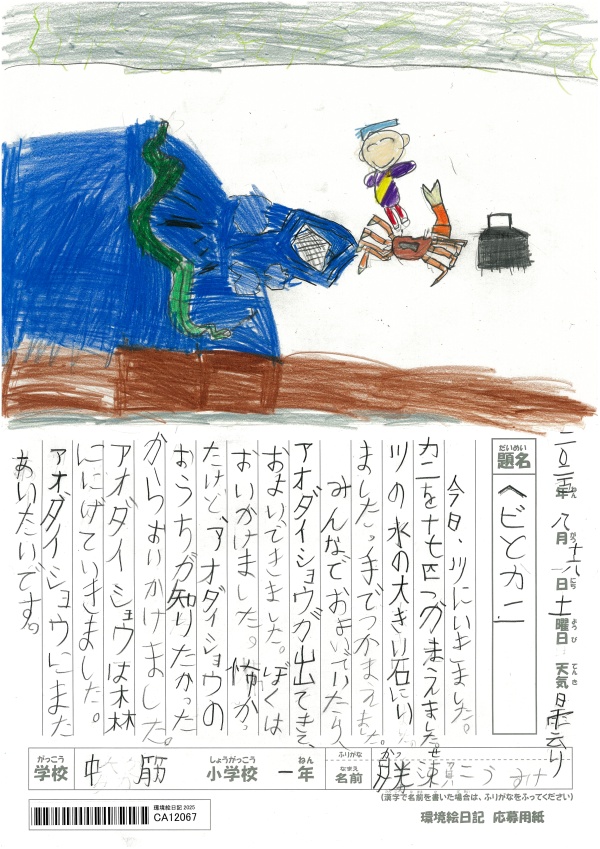 二〇二五年 八月 十六日 土曜日 天気 曇り
ねん がつ にち ようび てんき
だいめい
題名 ヘビとカニ
今日、川にいきました。
カニを十七匹つかまえました。
ツの水の大きい石にい
ました。手でつかまえました。
みんなでおよいでいたら、
アオダイショウが出てきて、
およいできました。ぼくは
おいかけました。怖かっ
たけど、アオダイショウの
おうちが知りたかった
からおいかけました。
アオダイショウは木林
ににげていきました。
アオダイショウにまた
あいたいです。
がっこう しょうがっこう ねん ふりがな
学校 中筋 小学校 一年 なまえ 名前 勝
(漢字で名前を書いた場合は、ふりがなをふってください)
環境絵日記 2025
CA12067
環境絵日記 応募用紙